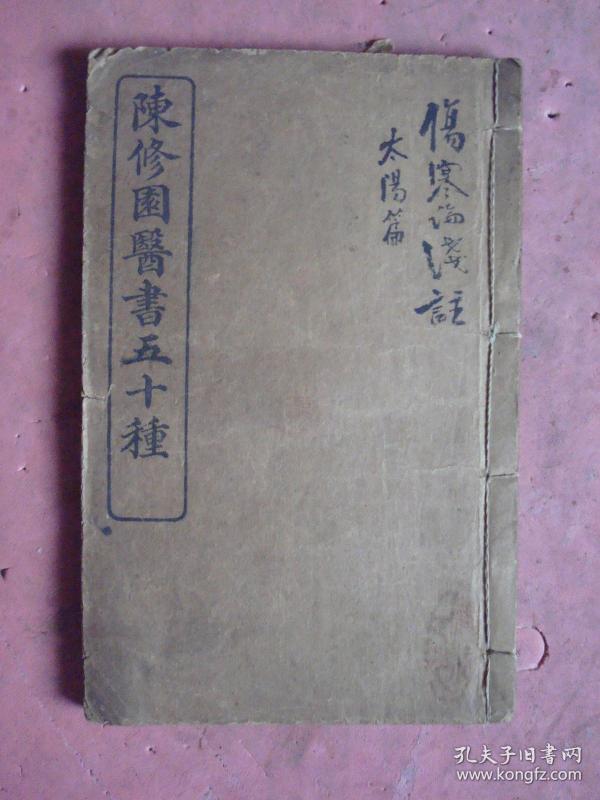 傷寒論淺註
太陽篇
陳修園醫書五十種
孔夫子旧書网
www.kongfz.com